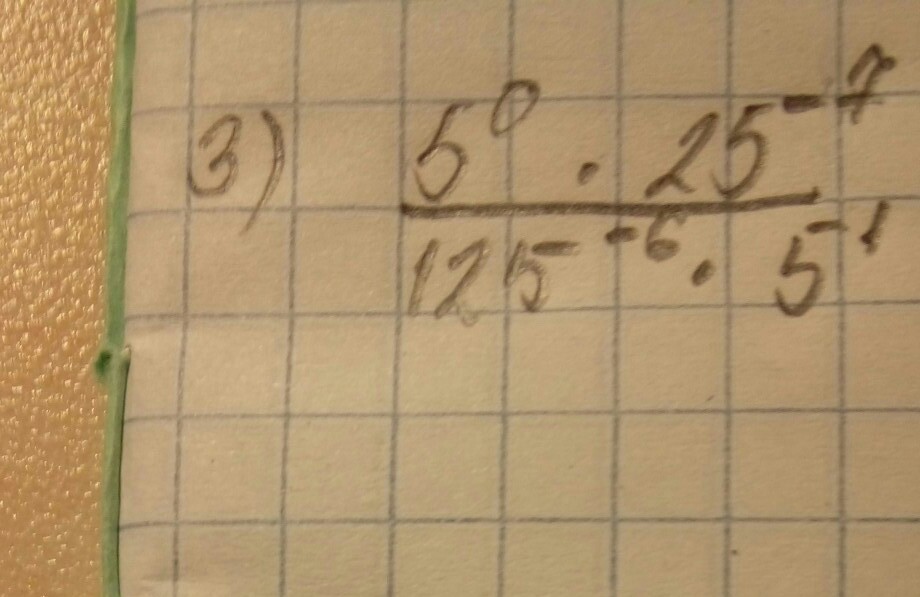 3) 5⁰ · 25⁻⁷
125⁻⁶ · 5⁻¹